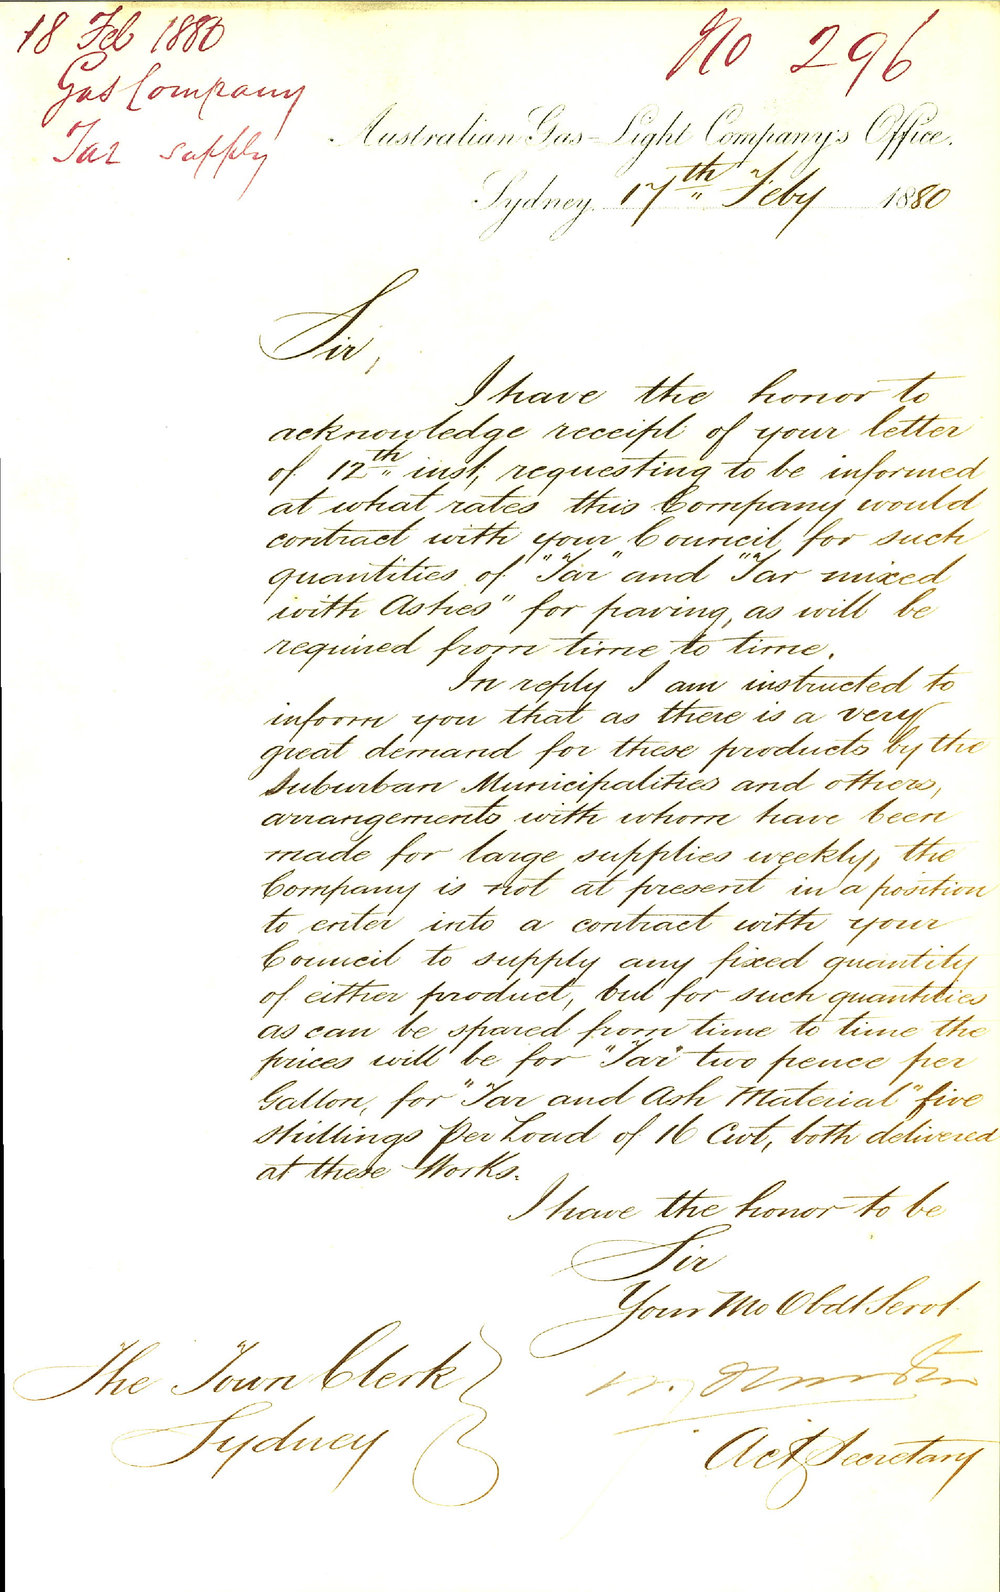 18 Feb 1880
Gas Company
Tar supply
No 296
Australian Gas-Light Company's Office.
Sydney. 17th Feby 1880
Sir,
I have the honor to
acknowledge receipt of your letter
of 12th inst, requesting to be informed
at what rates this Company would
contract with your Council for such
quantities of "Tar" and "Tar mixed
with Ashes" for paving, as will be
required from time to time.
In reply I am instructed to
inform you that as there is a very
great demand for these products by the
Suburban Municipalities and others,
arrangements with whom have been
made for large supplies weekly, the
Company is not at present in a position
to enter into a contract with your
Council to supply any fixed quantity
of either product, but for such quantities
as can be spared from time to time the
prices will be for "Tar" two pence per
Gallon, for "Tar and Ash Material" five
shillings per Load of 16 Cwt, both delivered
at these Works.
I have the honor to be
Sir
Your Mo Obdt Servt
The Town Clerk
Sydney
Act Secretary